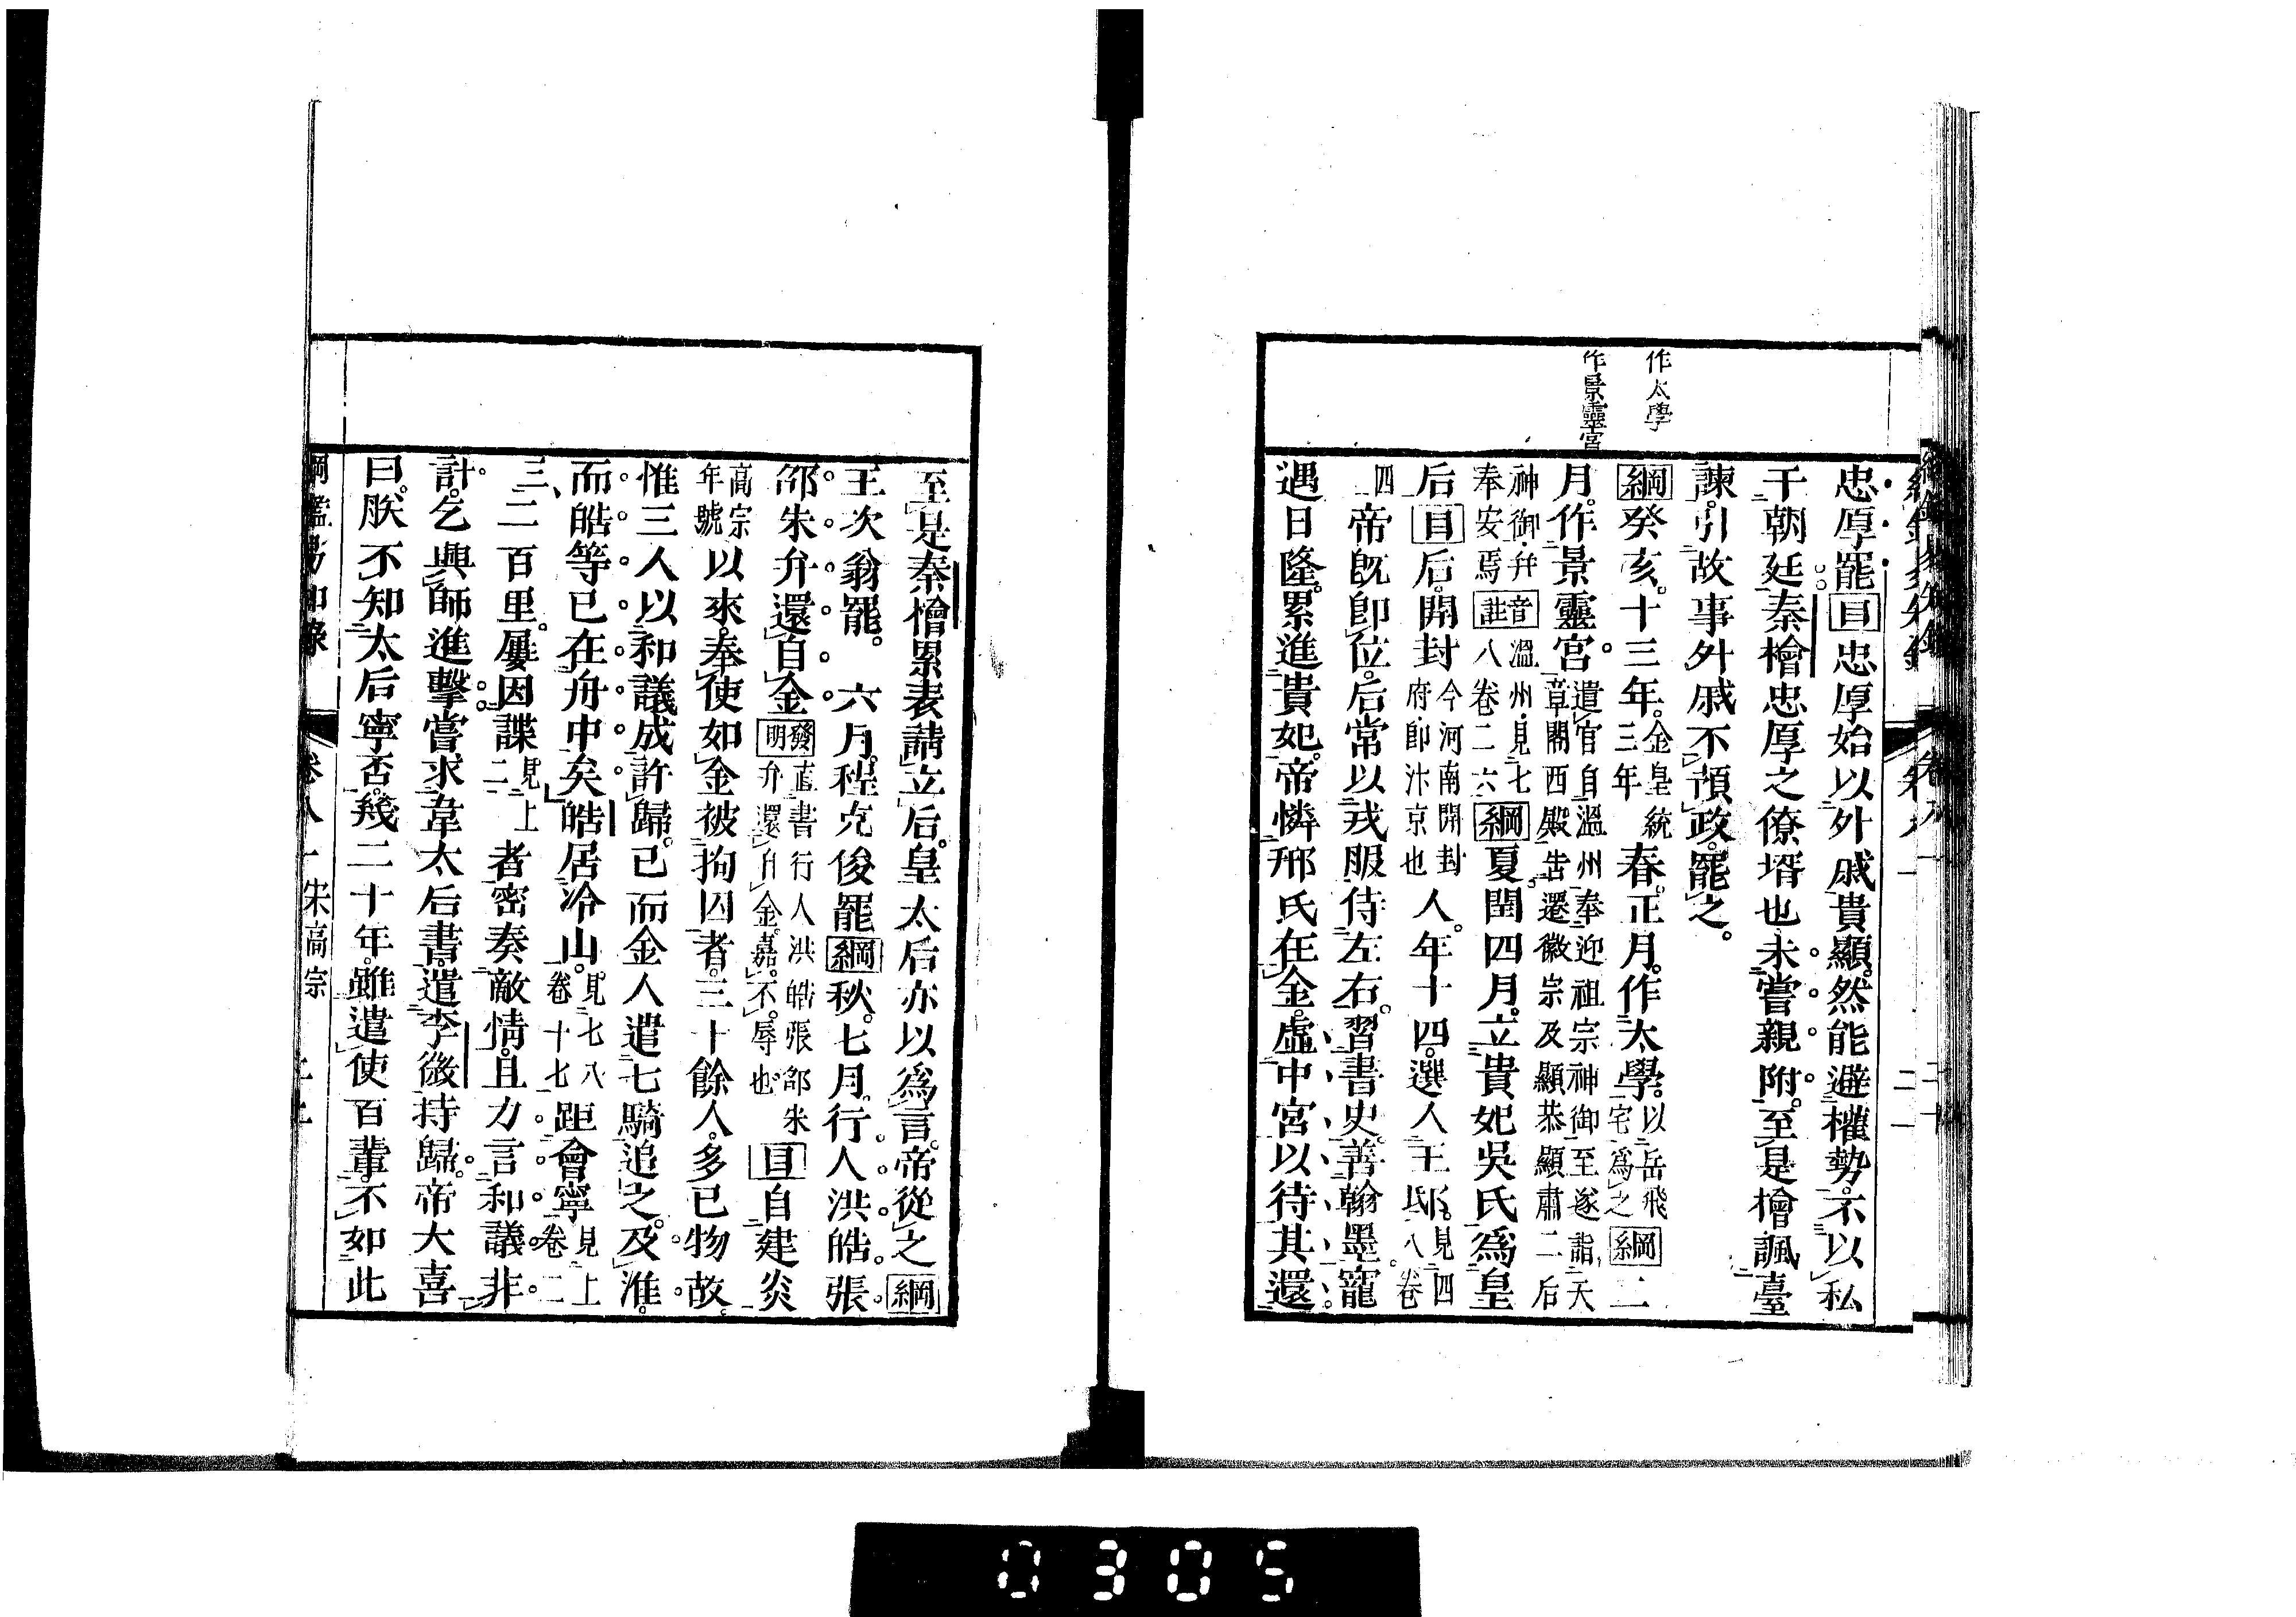 作太學
作景靈宮
忠厚罷。目忠厚始以外戚貴顯。然能避權勢。不以私
干朝廷。秦檜忠厚之僚壻也。未嘗親附。至是檜諷臺
諫。引故事外戚不預政。罷之。
綱癸亥。十三年。金皇統三年春。正月。作太學。以岳飛宅爲之綱二
月。作景靈宮。遣官自溫州奉迎祖宗神御至遂詣天章閣西殿告遷徽宗及顯恭顯肅二后
神御幷奉安焉註音溫州見七八卷二六綱夏。閏四月。立貴妃吳氏爲皇
后目后。開封今河南開封府卽汴京也人。年十四。選入王邸。見四八卷
四帝旣卽位。后常以戎服侍左右。習書史。善翰墨。寵
遇日隆。累進貴妃。帝憐邢氏在金。虛中宮以待其還。
至是秦檜累表請立后。皇太后亦以爲言。帝從之綱
王次翁罷。六月。程克俊罷綱秋。七月。行人洪皓。張
邵。朱弁還自金發明直書行人洪皓張邵朱弁還自金。嘉不辱也目自建炎
高宗年號以來。奉使如金被拘囚者。三十餘人。多已物故。
惟三人以和議成許歸。已而金人遣七騎追之。及淮。
而皓等已在舟中矣。皓居冷山。見七八卷十七距會寧見上卷二
三、二百里。屢因諜見上二者密奏敵情。且力言和議非
計。乞興師進擊。嘗求韋太后書。遣李微持歸。帝大喜
曰。朕不知太后寧否。幾二十年。雖遣使百輩。不如此
綱鑑易知錄 卷八一宋高宗